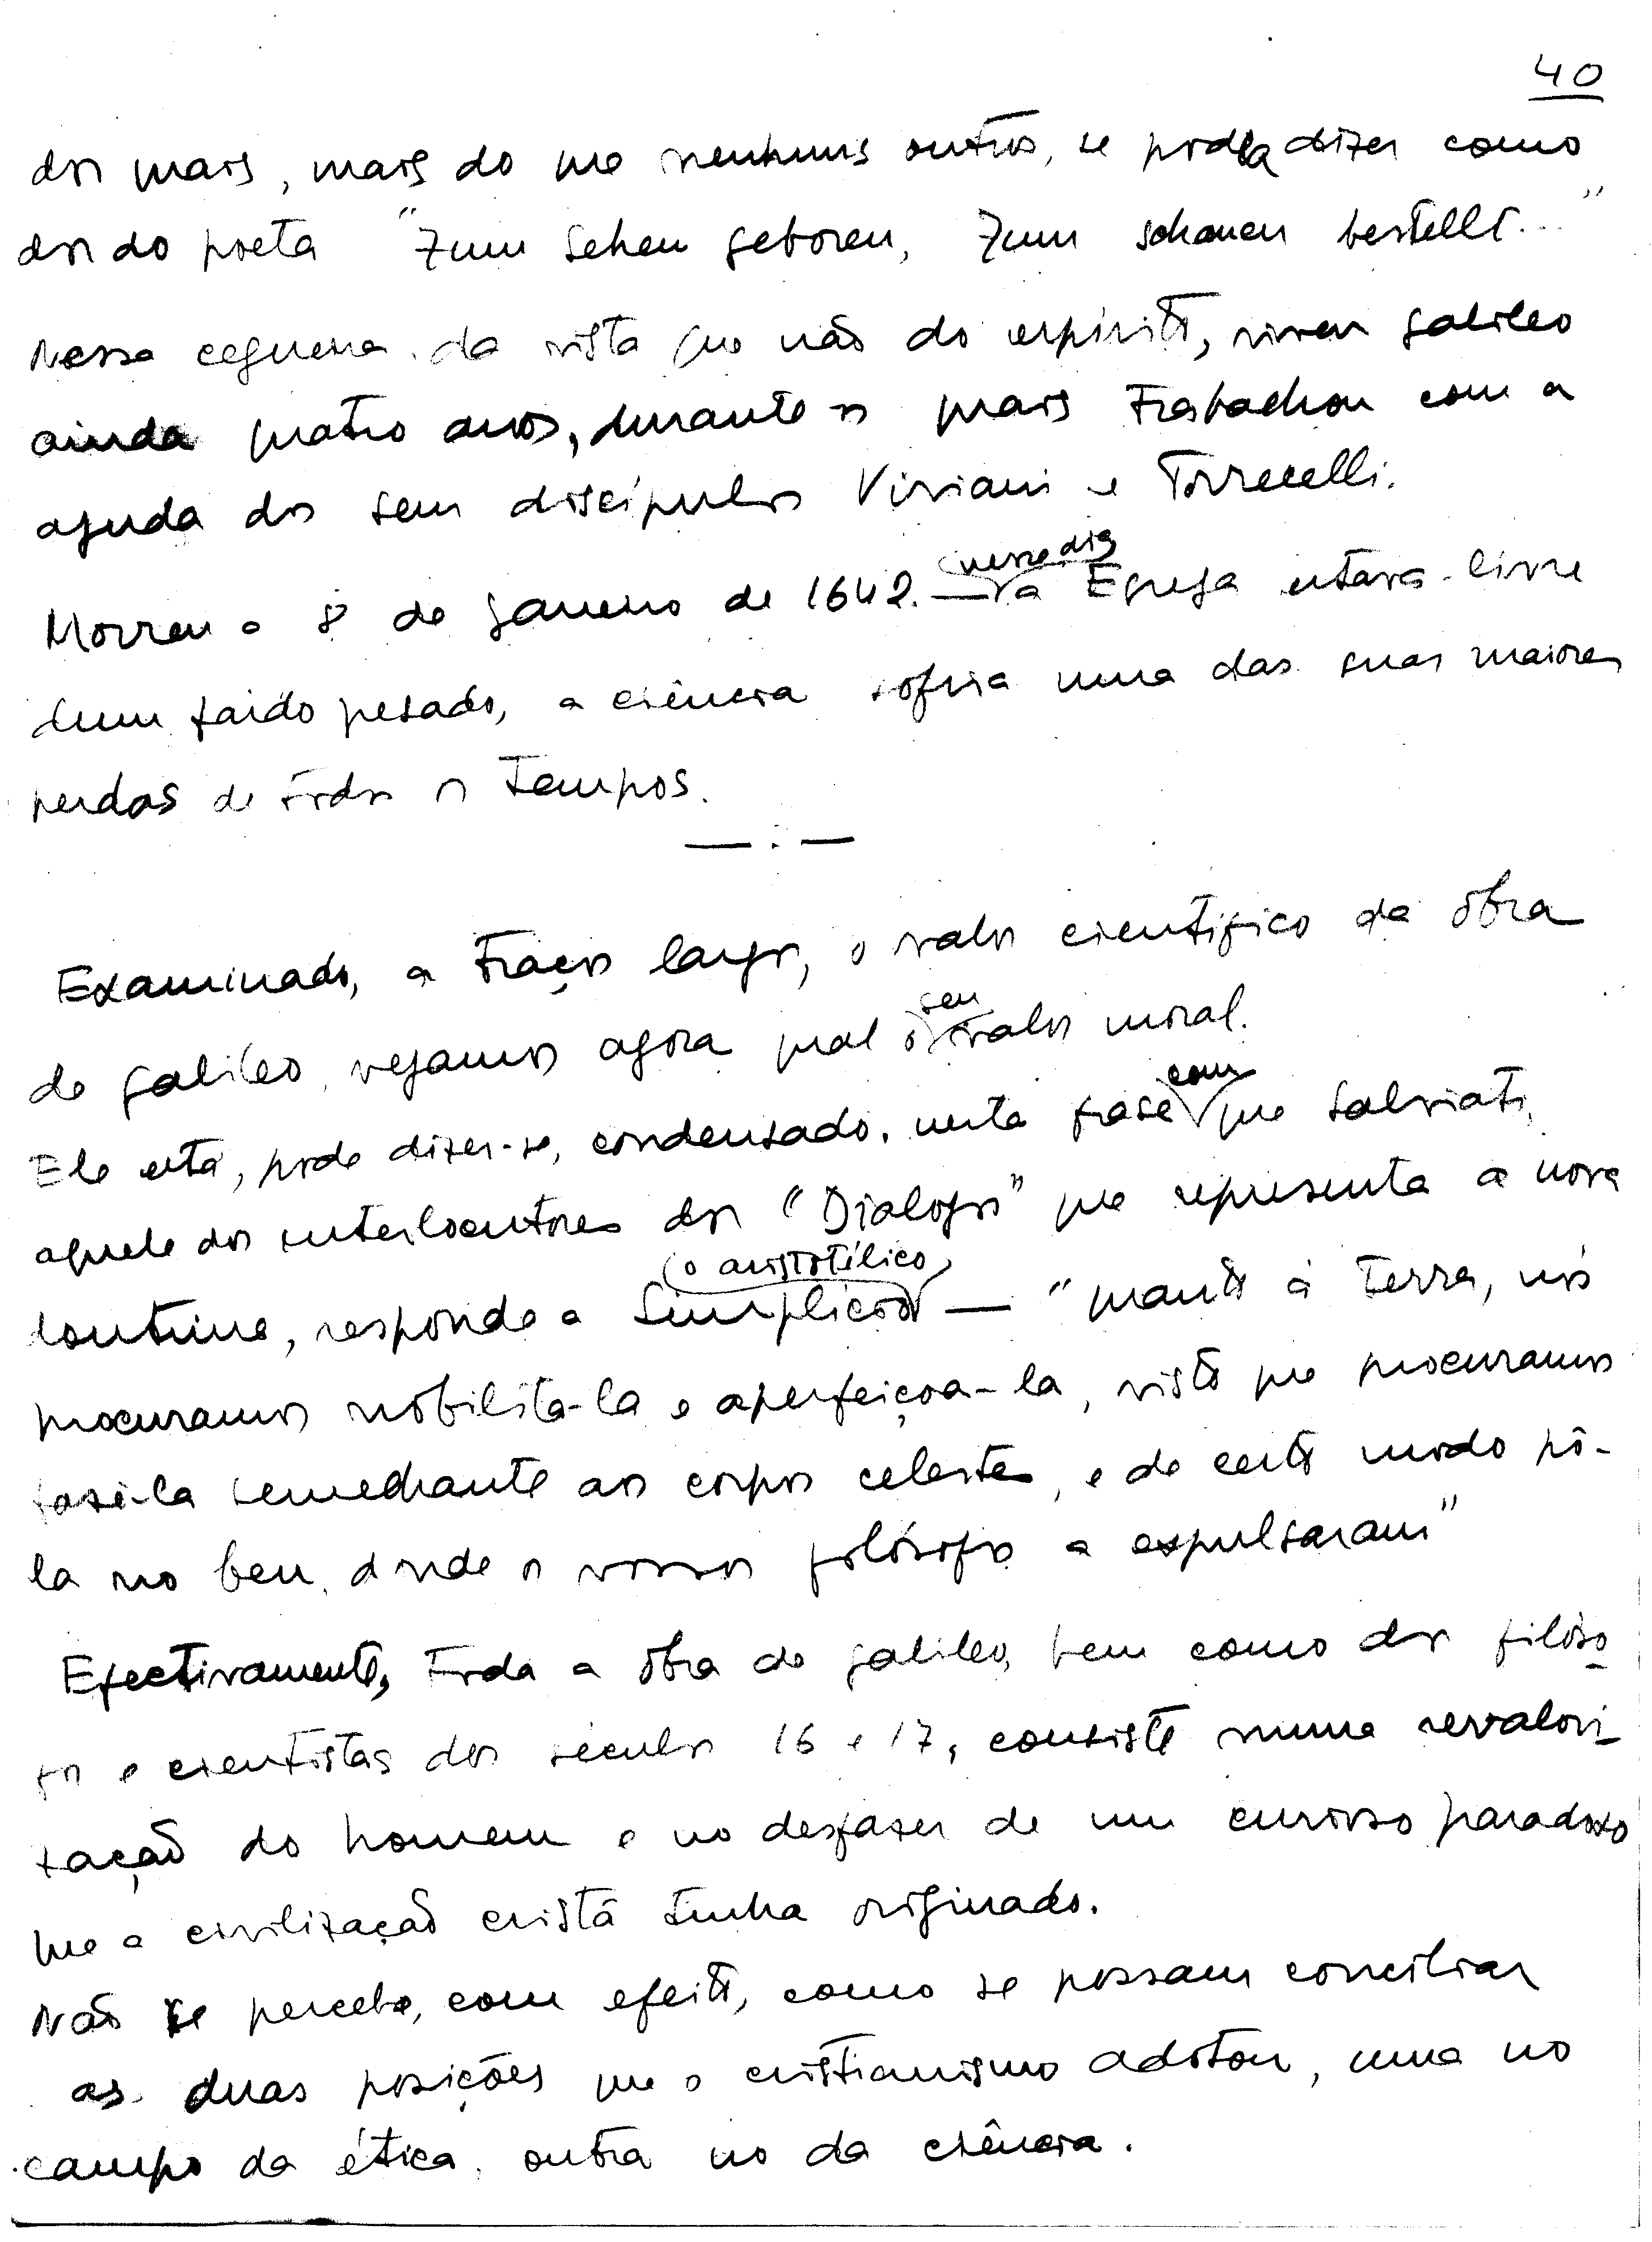 40
dos quais, mais do que nenhuns outros, se podia dizer como
dos do poeta "Zum Sehen geboren, Zum schauen bestellt..."
Nessa cegueira da vista que não do espírito, viveu Galileo
ainda quatro anos, durante os quais trabalhou com a
ajuda dos seus discípulos Viviani e Torrecelli.
Morreu a 8 de Janeiro de 1642. — nesse dia a Egreja estava livre
dum fardo pesado, a ciência sofria uma das suas maiores
perdas de todos os tempos.
— . —
Examinado, a traços largos, o valor científico da obra
de Galileo, vejamos agora qual o seu valor moral.
Ele está, pode dizer-se, condensado, nesta frase com que Salviati,
aquele dos interlocutores dos "Dialogos" que representa a nova
doutrina, responde a Simplicio (o aristotélico) — "quanto à Terra, nós
procuramos nobilitá-la e aperfeiçoá-la, visto que procuramos
fazê-la semelhante aos corpos celestes, e de certo modo pô-
la no ceu, donde os vossos filósofos a expulsaram"
Efectivamente, toda a obra de Galileo, bem como dos filóso
fos e cientistas dos séculos 16 e 17, consiste numa revalori
zação do homem e no desfazer de um curioso paradoxo
que a civilização cristã tinha originado.
Não se percebe, com efeito, como se possam conciliar
as duas posições que o cristianismo adotou, uma no
campo da ética, outra no da ciência.